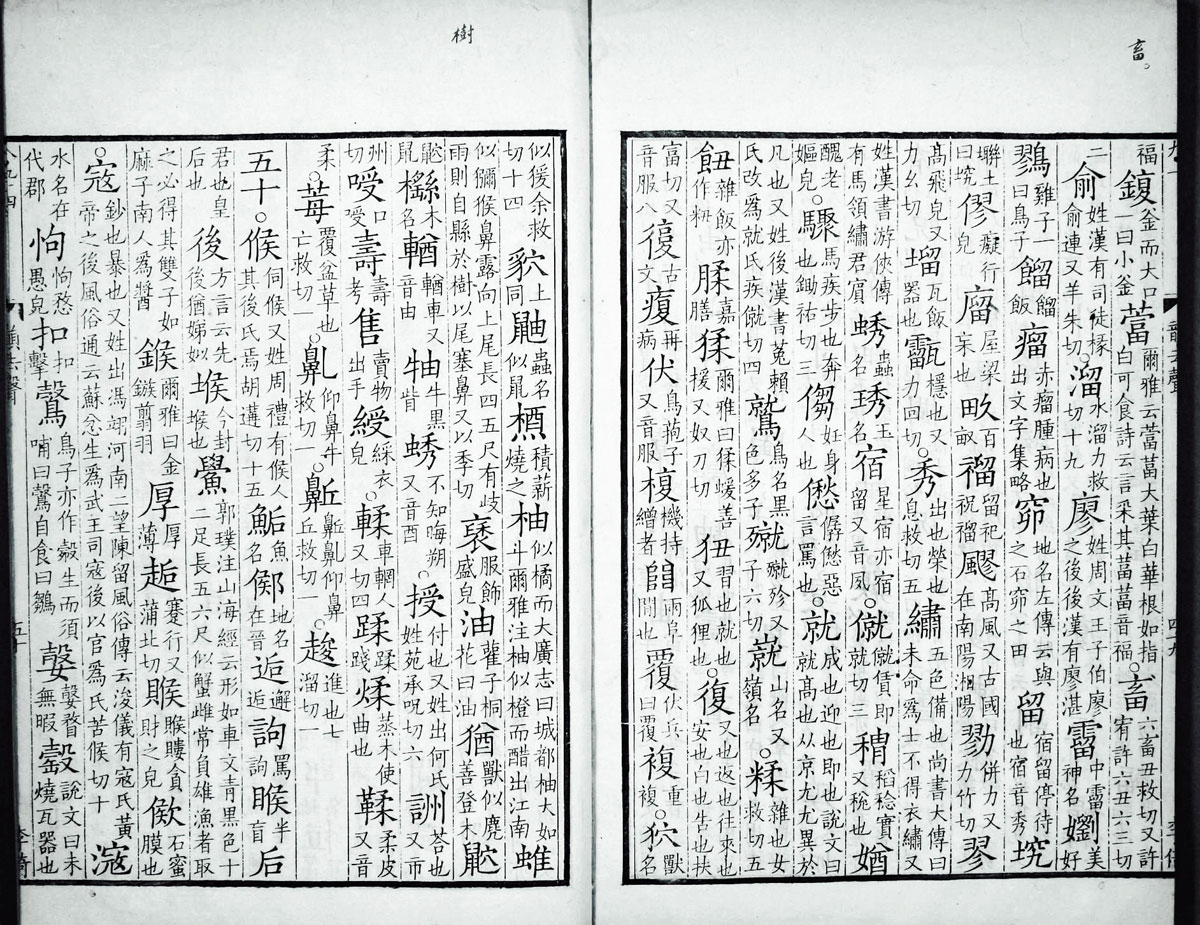 畜。
福鍑釜而大口一曰小釜葍爾雅云葍䔰大葉白華根如指白可食詩云言采其葍葍音福。畜六畜丑救切又許宥許六丑六三切
二俞姓漢有司徒掾俞連又羊朱切。溜水溜力救切十九廖姓周文王子伯廖之後後漢有廖湛霤中霤神名嬼美好
鷚雞子一曰鳥子餾餾飯瘤赤瘤腫病也出文字集略窌地名左傳云與之石窌之田留宿留停待也宿音秀
僇癡行皃廇屋梁宷也畂百畝飂高風又古國在南陽湘陽勠併力又力竹切翏
高飛皃又力幺切塯瓦飯器也穩也又力回切。秀出也榮也息救切五繡五色備也尚書大傳曰未命爲士不得衣繡又
姓漢書游俠傳有馬領繡君賓蜏蟲名琇玉名宿星宿亦宿留又音夙。僦僦賃即就切三稻稔實又稅也媨
醜老嫗皃。驟馬疾步也奔也鋤祐切三㑳妊身人也僽僝僽惡言罵也。就成也迎也即也說文曰就高也从京尤尤異於
凡也又姓後漢書菟賴氏改爲就氏疾僦切四鷲鳥名黑色多子殧殧殄又子六切山名又嶺名。糅雜也女救切五
雜飯亦作粈腬嘉膳猱爾雅曰猱蝯善援又奴刀切犱又狐狸也丑習也就也。復又也返也往來也安也白也告也扶
富切又音服八復古文㾒再病伏鳥菢子又音服椱機持繒者𨸏兩阜閒也覆伏兵曰覆複重複。狖獸名
樹
似猨余救切十四貁上同鼬蟲名似鼠槱積薪燒之柚似橘而大廣志曰城都柚大如斗爾雅注柚似橙而酢出江南蜼
似獼猴鼻露向上尾長四五尺有歧雨則自縣於樹以尾塞鼻又以季切褎服飾盛皃油蓶子桐花曰油猶獸似麂善登木
鼠名木名輶輶車又音由牰牛黑眥蜏不知晦朔又音酉。授付也又姓出何氏姓苑承呪切六詶荅也又市
州切嗳口嗳壽壽考售賣物出手綬綵衣皃輮車輞人又切四蹂蹂踐煣蒸木使曲也鞣柔皮又音
柔。莓覆盆草也亡救切一。仰鼻牛救切一。齅鼻仰鼻丘救切一。趡進也七溜切一
五十。候伺候又姓周禮有候人其後氏焉胡遘切十五鮜魚名鄇地名在晉逅邂逅詬罵詬睺半盲后
君也皇后也後方言云先後猶娣姒堠今封堠也鱟郭璞注山海經云形如車文青黑色十二足長五六尺似蟹雌常負雄漁者取
之必得其雙子如麻子南人爲醬鍭爾雅曰金鏃翦羽厚厚薄趏蹇行又蒲北切䞀貪財之皃䤧石蜜膜也
。宼鈔也暴也又姓出馮翊河南二望陳留風俗傳云浚儀有宼氏黃帝之後風俗通云蘇忿生爲武王司寇後以官爲氏苦候切十滱
水名在代郡怐怐愗愚皃扣扣擊鷇鳥子亦作𣫌生而須哺曰鷇自食曰鶵婺瞉瞀無暇㲉說文曰未燒瓦器也